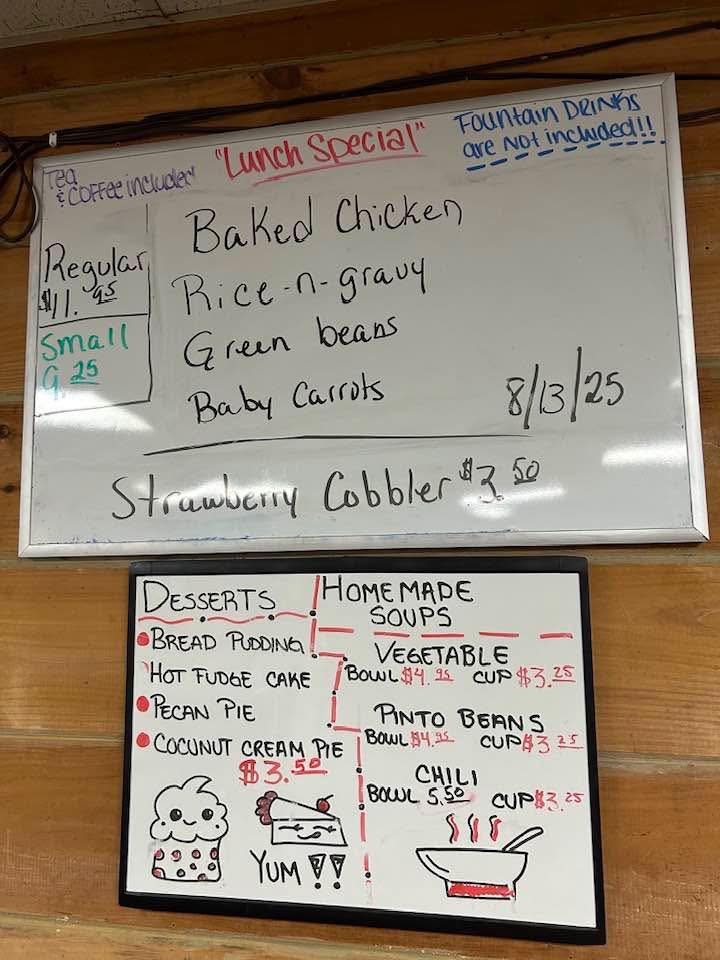 Tea
& COFFee included
"Lunch Special"
Fountain Drinks
are Not included!!
Regular
$11.95
Small
9.25
Baked Chicken
Rice-n-gravy
Green beans
Baby Carrots
8/13/25
Strawberry Cobbler $3.50
DESSERTS
BREAD PUDDING
HOT FUDGE CAKE
PECAN PIE
COCUNUT CREAM PIE
$3.50
YUM !!
HOMEMADE
SOUPS
VEGETABLE
BOWL $4.95 CUP $3.25
PINTO BEANS
BOWL $4.95 CUP $3.25
CHILI
BOWL 5.50 CUP $3.25